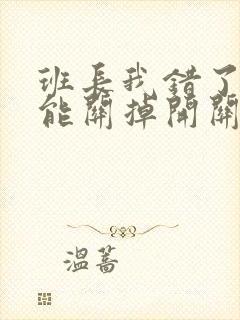 班長我錯了
能關掉開關
溫蒿